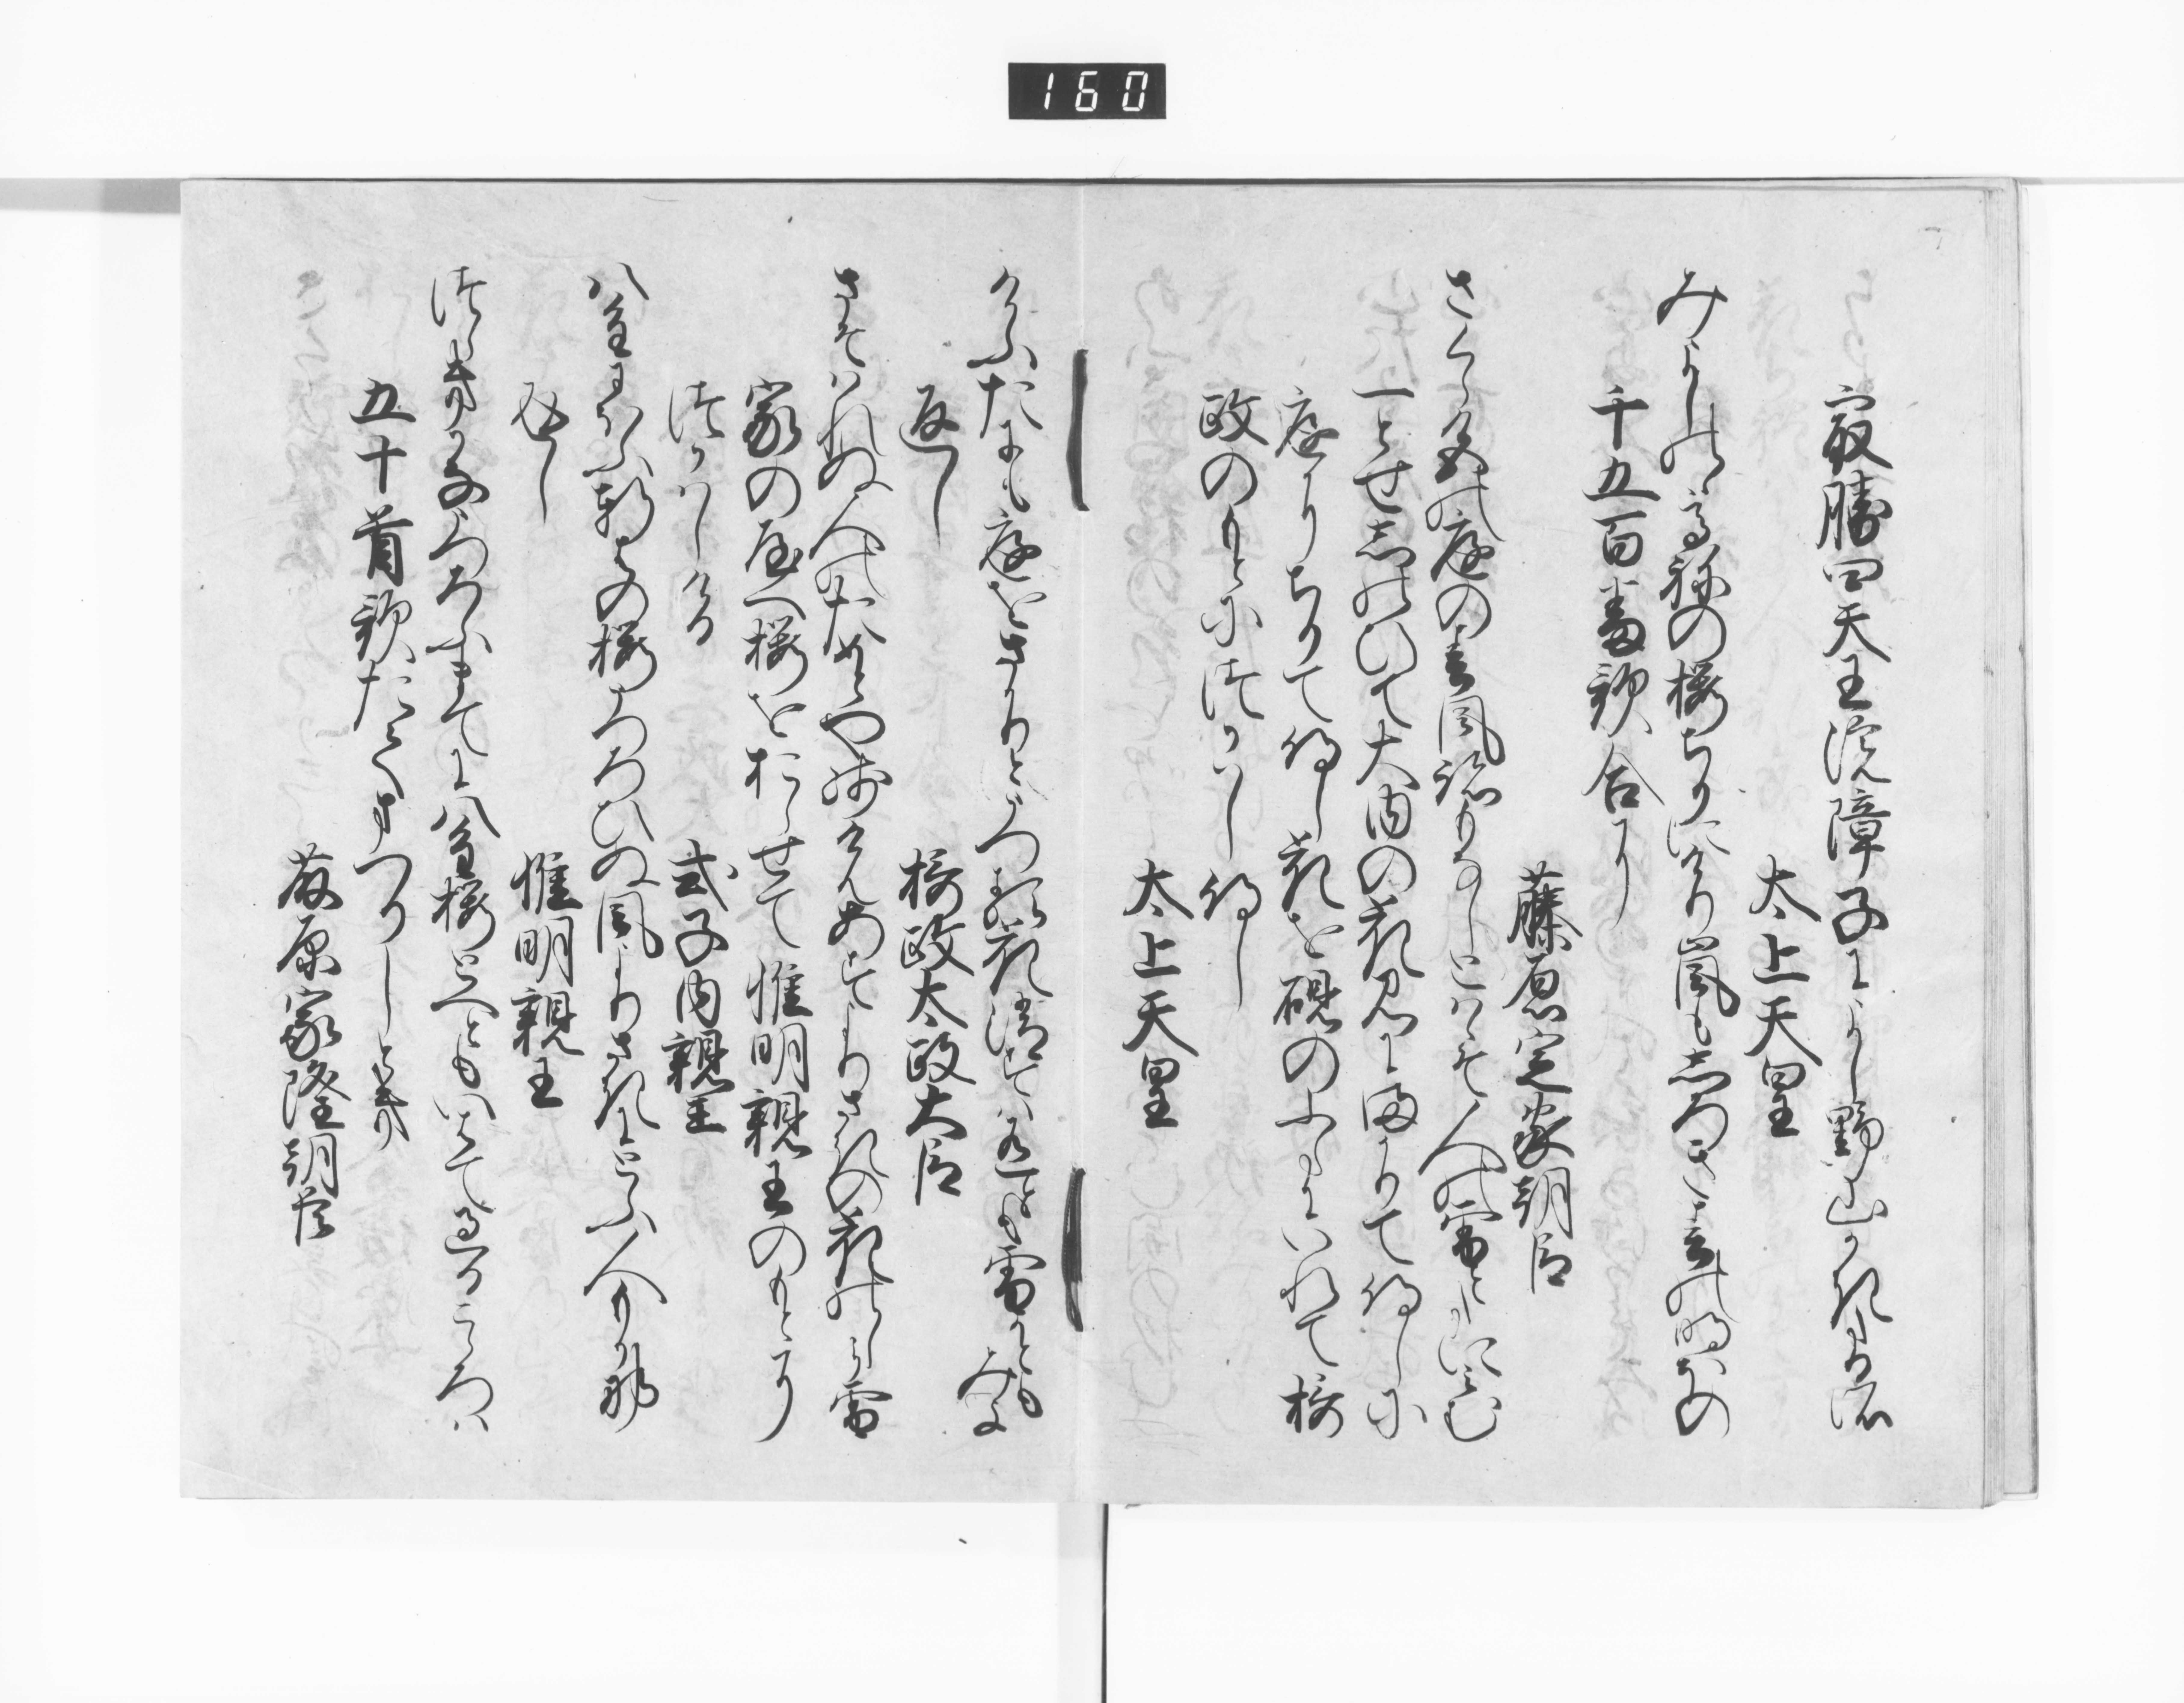 160
最勝四天王院障子によし野山かきたる所
太上天皇
みよしのゝ高ねの桜ちりにけり嵐もしろき春の明ほの
千五百番歌合に
藤原定家朝臣
さくら色の庭の春風跡もなしとはゝそ人の雪とたにみむ
一とせ忍ひて大内の花見にまかりて侍しに
庭にちりて侍し花を硯のふたにいれて摂
政のもとにつかはし侍し
太上天皇
けふたにも庭をさかりとうつる花消すはありとも雪かとも
みよ
返し
摂政太政大臣
さそはれぬ人のためとや残けんあすよりさきの花のしら雪
家の八重桜をおらせて惟明親王のもとに
つかはしける
式子内親王
八重にほふ軒はの桜うつろひぬ風よりさきにとふ人もか那
返し
惟明親王
つらきかなうつろふまてに八重桜とへともいはて過る心は
五十首歌たてまつりしとき
藤原家隆朝臣